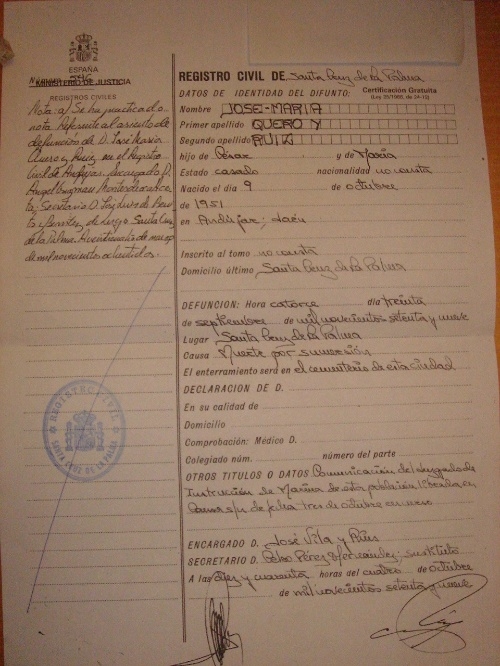 ESPAÑA
MINISTERIO DE JUSTICIA
REGISTROS CIVILES
Nota: a) Se ha practicado
nota Referente al asiento de
defunción de D. José María
Quero y Ruiz, en el Registro
Civil de Andújar. Encargado D.
Secretario D.
de la Palma, a veinticuatro de mayo
de mil novecientos ochenta y dos.
REGISTRO CIVIL
SANTA CRUZ DE LA PALMA
REGISTRO CIVIL DE Santa Cruz de la Palma
DATOS DE IDENTIDAD DEL DIFUNTO: Certificación Gratuita
(Ley 25/1986, de 24-12)
Nombre JOSE-MARIA
Primer apellido QUERO Y
Segundo apellido RUIZ
hijo de y de María
Estado casado nacionalidad no consta
Nacido el día 9 de octubre
de 1951
en Andújar; Jaén
Inscrito al tomo no consta
Domicilio último Santa Cruz de la Palma
DEFUNCION: Hora catorce día treinta
de septiembre de mil novecientos setenta y nueve
Lugar Santa Cruz de la Palma
Causa Muerte por sumersión
El enterramiento será en el cementerio de esta ciudad
DECLARACION DE D.
En su calidad de
Domicilio
Comprobación: Médico D.
Colegiado núm. número del parte
OTROS TITULOS O DATOS Comunicación del Juzgado de
Instrucción de Marina de esta población
de fecha tres de octubre
ENCARGADO D. José Vila y
SECRETARIO D. Celso Pérez Hernández; sustituto
A las diez y cuarenta horas del cuatro de octubre
de mil novecientos setenta y nueve